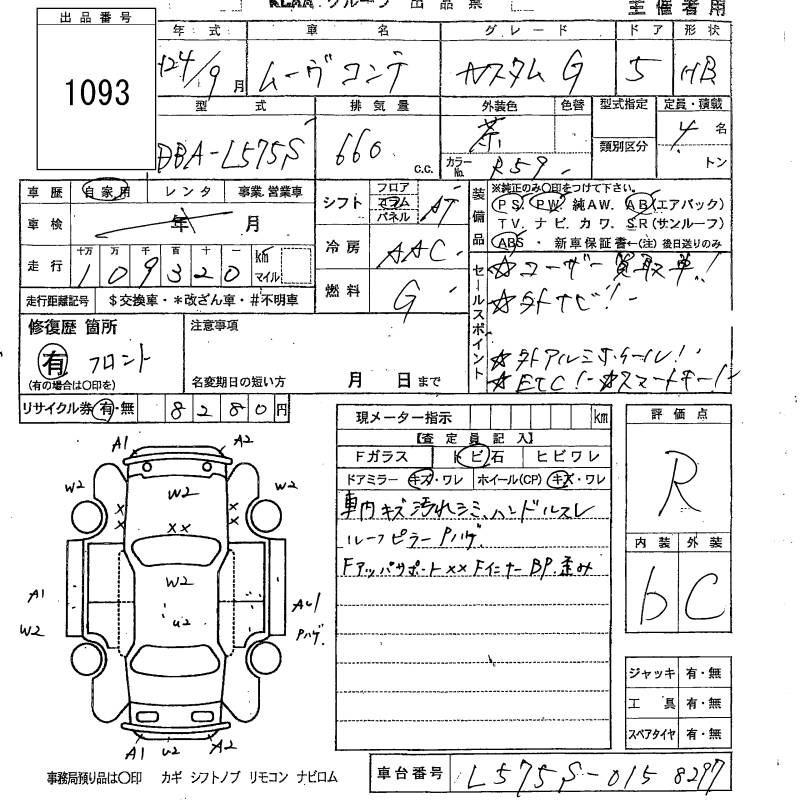 KLAA グループ 出品票 主催者用
出品番号
1093
年式 車名 グレード ドア 形状
H24/9月 ムーヴコンテ カスタムG 5 HB
型式 排気量 外装色 色替 型式指定 定員・積載
DBA-L575S 660 c.c. 茶 カラーNo. R59 類別区分 4名
トン
車歴 自家用 レンタ 事業.営業車
車検 年 月
走行 十万 万 千 百 十 一 km マイル
109320
走行距離記号 $交換車・*改ざん車・#不明車
シフト フロア コラム パネル AT
冷房 AAC
燃料 G
装備品
※純正のみ〇印をつけて下さい。
PS. PW. 純AW. AB(エアバック)
TV. ナビ. カワ. SR(サンルーフ)
ABS ・ 新車保証書←(注) 後日送りのみ
セールスポイント
☆ユーザー買取車!
☆外ナビ!
☆外アルミホイール!
☆ETC! ☆スマートキー!
修復歴 箇所
有 フロント
(有の場合は〇印を)
注意事項
名変期日の短い方 月 日まで
リサイクル券 有・無 8280円
現メーター指示 km
【査定員記入】
Fガラス トビ石 ヒビワレ
ドアミラー キズ・ワレ ホイール(CP) キズ・ワレ
車内キズ汚れシミ、ハンドルスレ
ルーフピラーPハゲ.
FアッパサポートXX FインナーBP.歪み
評価点
R
内装 外装
b C
ジャッキ 有・無
工具 有・無
スペアタイヤ 有・無
A1 A2
W2 W2 W2
X X
X X
XX
A1 W2 A4 1
W2 U2 Pハゲ.
A1 U2 A2
事務局預り品は〇印 カギ シフトノブ リモコン ナビロム
車台番号 L575S-0158297